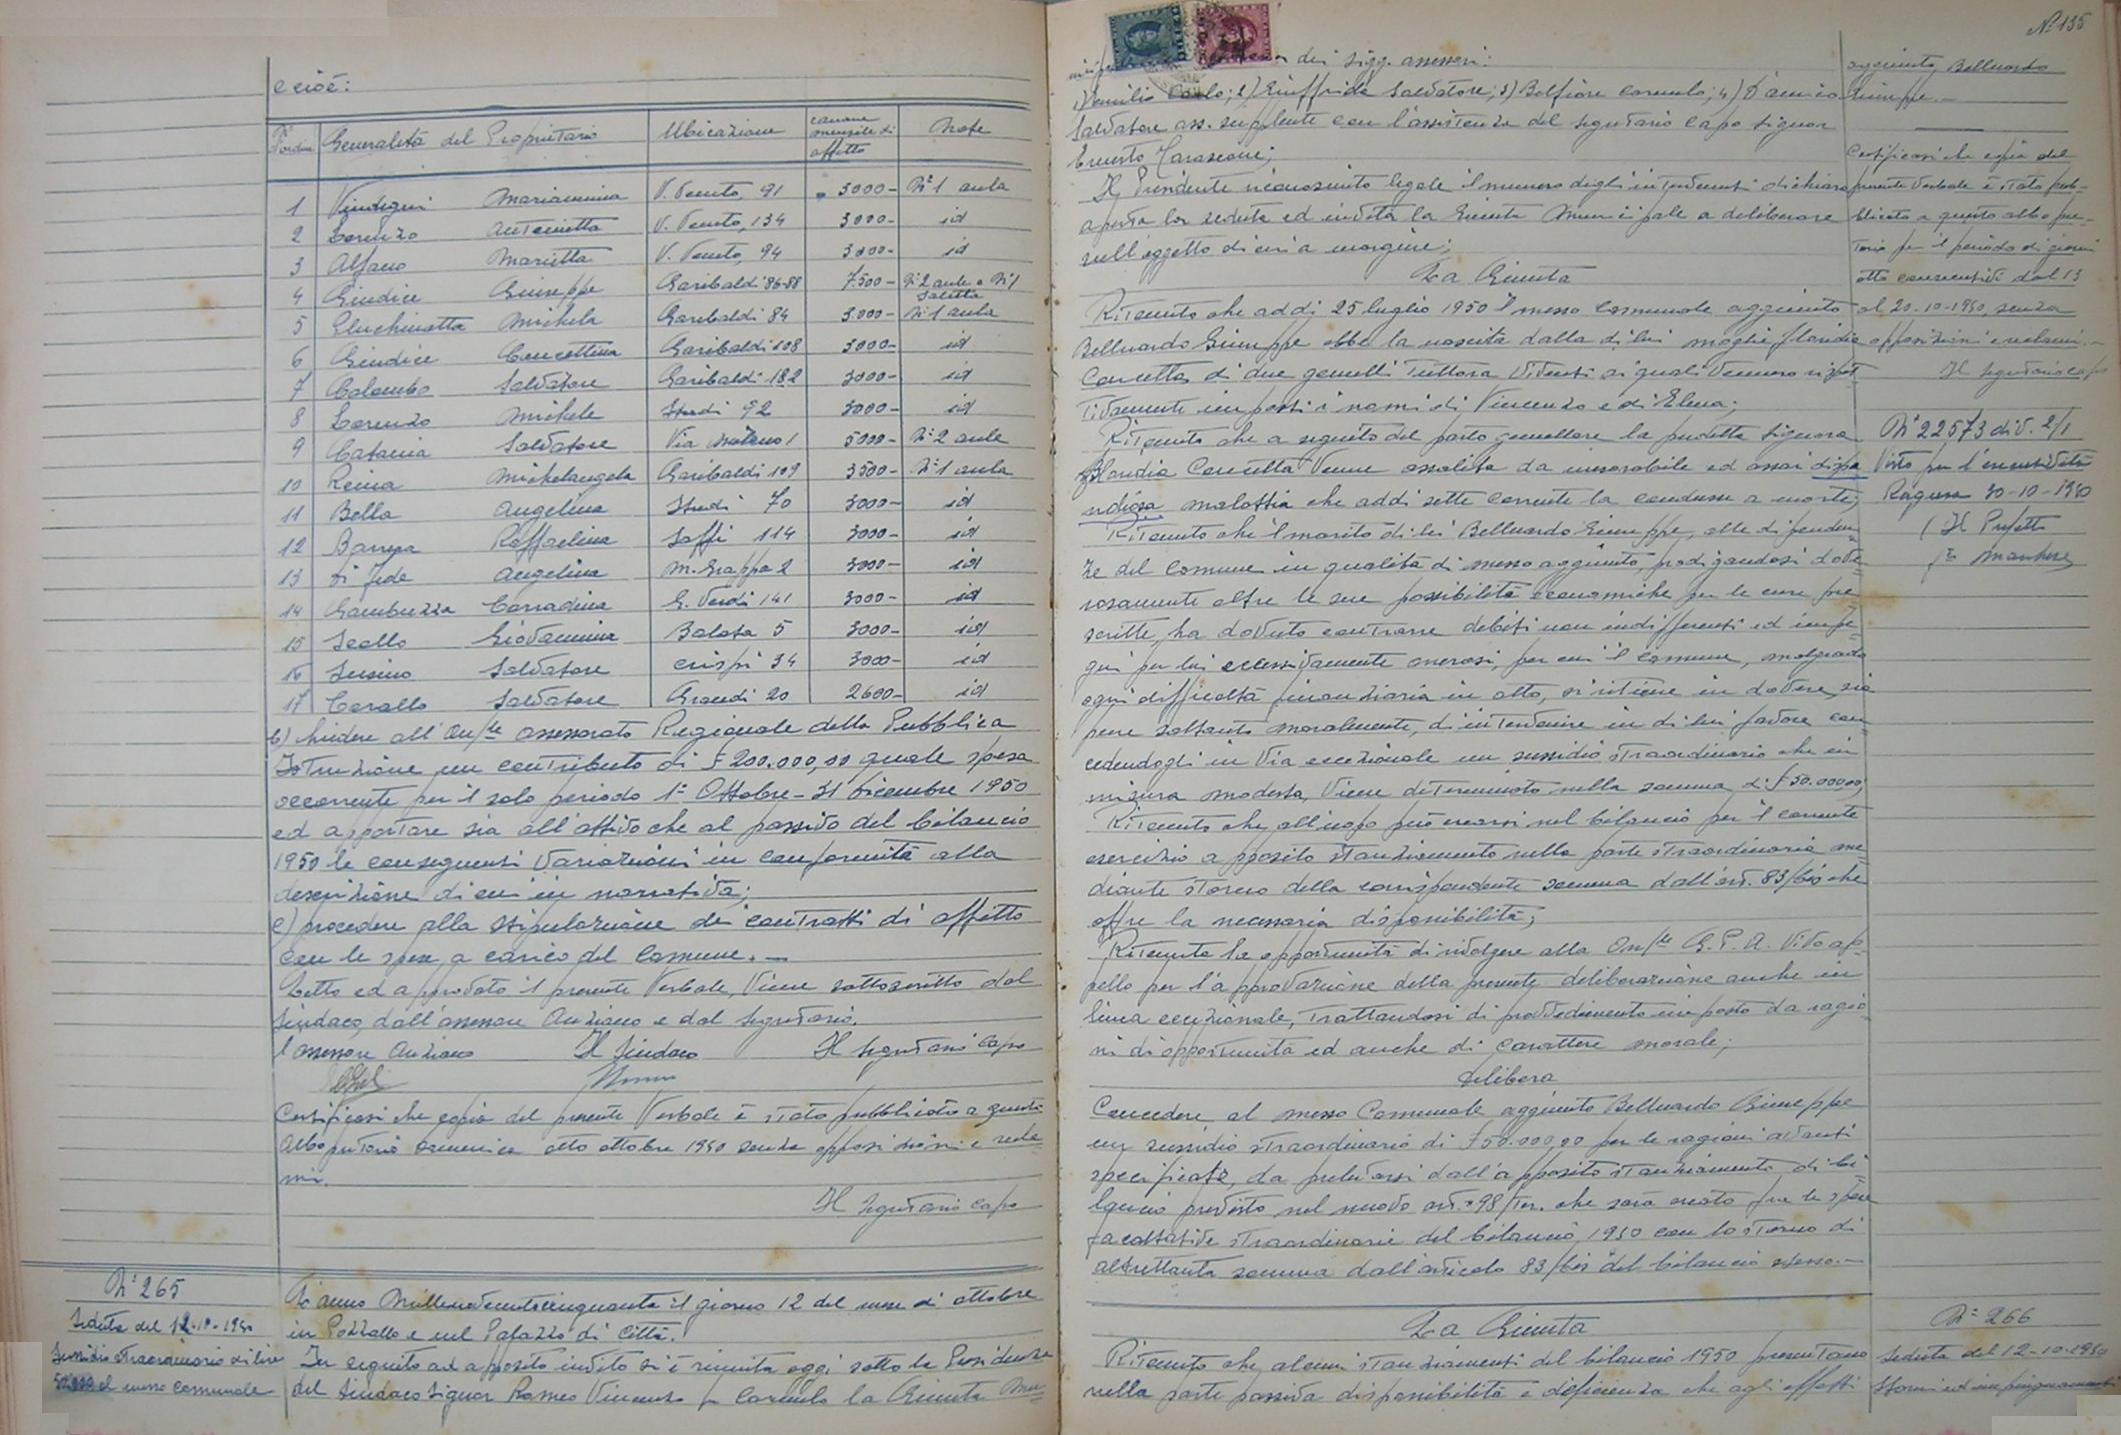 e cioè:
N° d'ordine Generalità del Proprietario Ubicazione canone mensile di affitto Note
1 Vindigni Mariannina V. Veneto, 91 3000- N° 1 aula
2 Lorenzo Antonietta V. Veneto, 134 3000- id
3 Alfano Marietta V. Veneto, 94 3000- id
4 Giudice Giuseppe Garibaldi 86-88 7500- N° 2 aule e N° 1 saletta
5 Michela Garibaldi 84 3000- N° 1 aula
6 Giudice Concettina Garibaldi 108 3000- id
7 Colombo Salvatore Garibaldi 182 3000- id
8 Lorenzo Michele Studi 92 3000- id
9 Catania Salvatore Via 5000- N° 2 aule
10 Reina Michelangela Garibaldi 109 3500- N° 1 aula
11 Bella Angelina Studi 70 3000- id
12 Barrera Raffaelina Saffi 114 3000- id
13 Di Fede Angelina M. Grappa 2 3000- id
14 Gambuzza Corradina G. Verdi 141 3000- id
15 Scollo Giovannina Balata 5 3000- id
16 Susino Salvatore Crispi 34 3000- id
17 Cavallo Salvatore Grandi 20 2600- id
b) chiedere all'On/le assessorato Regionale della Pubblica
Istruzione un contributo di £ 200.000,00 quale spesa
occorrente per il solo periodo 1° Ottobre - 31 Dicembre 1950
ed apportare sia all'attivo che al passivo del bilancio
1950 le conseguenti variazioni in conformità alla
descrizione di cui in narrativa;
c) procedere alla stipulazione dei contratti di affitto
con le spese a carico del Comune. —
Letto ed approvato il presente Verbale, viene sottoscritto dal
Sindaco, dall'assessore Anziano e dal Segretario.
L'assessore Anziano Il Sindaco Il Segretario Capo
Certificasi che copia del presente Verbale è stato pubblicato a questo
Albo pretorio domenica otto ottobre 1950 senza opposizioni e recla
mi.
Il Segretario Capo
N° 265
Seduta del 12-10-1950
Sussidio straordinario di lire
50.000 al messo comunale
L'anno Millenovecentocinquanta il giorno 12 del mese di ottobre
in Pozzallo e nel Palazzo di Città.
In seguito ad apposito invito si è riunita oggi sotto la Presidenza
del Sindaco Signor Romeo Vincenzo fu Carmelo la Giunta Mu-
N° 135
aggiunto Belluardo
Giuseppe. —
dei sigg. assessori:
1) Carlo; 2) Giuffrida Salvatore; 3) Belfiore Carmelo; 4) D'amico
Salvatore ass. supplente con l'assistenza del segretario capo signor
Ernesto Tarascone;
Il Presidente riconosciuto legale il numero degli intervenuti dichiara
aperta la seduta ed invita la Giunta Municipale a deliberare
sull'oggetto di cui a margine;
La Giunta
Ritenuto che addì 25 luglio 1950 il messo Comunale aggiunto
Belluardo Giuseppe ebbe la nascita dalla di lui moglie Floridia
Concetta di due gemelli tuttora viventi ai quali vennero rispet-
tivamente imposti i nomi di Vincenzo e di Elena;
Ritenuto che a seguito del parto gemellare la predetta signora
Floridia Concetta venne assalita da inesorabile ed assai dispe
ndiosa malattia che addì sette corrente la condusse a morte;
Ritenuto che il marito di lei Belluardo Giuseppe, alle dipenden
ze del Comune in qualità di messo aggiunto, prodigandosi dove-
rosamente oltre le sue possibilità economiche per le cure pre-
scritte, ha dovuto contrarre debiti non indifferenti ed impe-
gni per lui eccessivamente onerosi, per cui il Comune, malgrado
ogni difficoltà finanziaria in atto, si ritiene in dovere, sia
pure soltanto moralmente, di intervenire in di lui favore con
cedendogli in via eccezionale un sussidio straordinario che in
misura modesta, viene determinato nella somma di £ 50.000,00;
Ritenuto che all'uopo può crearsi nel bilancio per il corrente
esercizio apposito stanziamento nella parte straordinaria me
diante storno della corrispondente somma dall'art. 83/bis che
offre la necessaria disponibilità;
Ritenuta la opportunità di rivolgere alla On/le G.P.A. vivo ap-
pello per l'approvazione della presente deliberazione anche in
linea eccezionale, trattandosi di provvedimento imposto da ragio-
ni di opportunità ed anche di carattere morale;
delibera
Concedere al messo Comunale aggiunto Belluardo Giuseppe
un sussidio straordinario di £ 50.000,00 per le ragioni avanti
specificate, da prelevarsi dall'apposito stanziamento di bi
lancio previsto nel nuovo art. 98/ter. che sarà creato fra le spese
facoltative straordinarie del bilancio 1950 con lo storno di
altrettanta somma dall'articolo 83/bis del bilancio stesso. —
Certificasi che copia del
presente Verbale è stato pub-
blicato a questo albo pre-
torio per il periodo di giorni
otto consecutivi dal 13
al 20-10-1950, senza
opposizioni e reclami. —
Il Segretario capo
N° 22573 div. 2/1
Visto per l'esecutività
Ragusa 30-10-1950
Il Prefetto
N° 266
Seduta del 12-10-1950
Storni ed impinguamenti
La Giunta
Ritenuto che alcuni stanziamenti del bilancio 1950 presentano
nella parte passiva disponibilità e deficienza che agli effetti